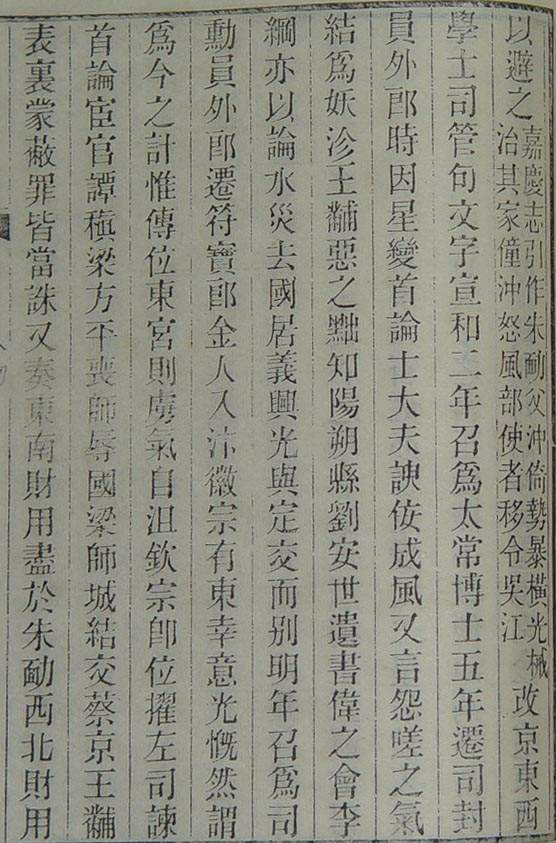 以避之嘉慶志引作朱勔父沖倚勢暴橫光械治其家僮沖怒風部使者移令吳江改京東西
學士司管句文字宣和二年召爲太常博士五年遷司封
員外郎時因星變首論士大夫諛佞成風又言怨嗟之氣
結爲妖沴王黼惡之黜知陽朔縣劉安世遺書偉之會李
綱亦以論水災去國居義興光與定交而别明年召爲司
勳員外郎遷符寶郎金人入汴徽宗有東幸意光慨然謂
爲今之計惟傳位東宮則虜氣自沮欽宗卽位擢左司諫
首論宦官譚稹梁方平喪師辱國梁師城結交蔡京王黼
表裏蒙蔽罪皆當誅又奏東南財用盡於朱勔西北財用